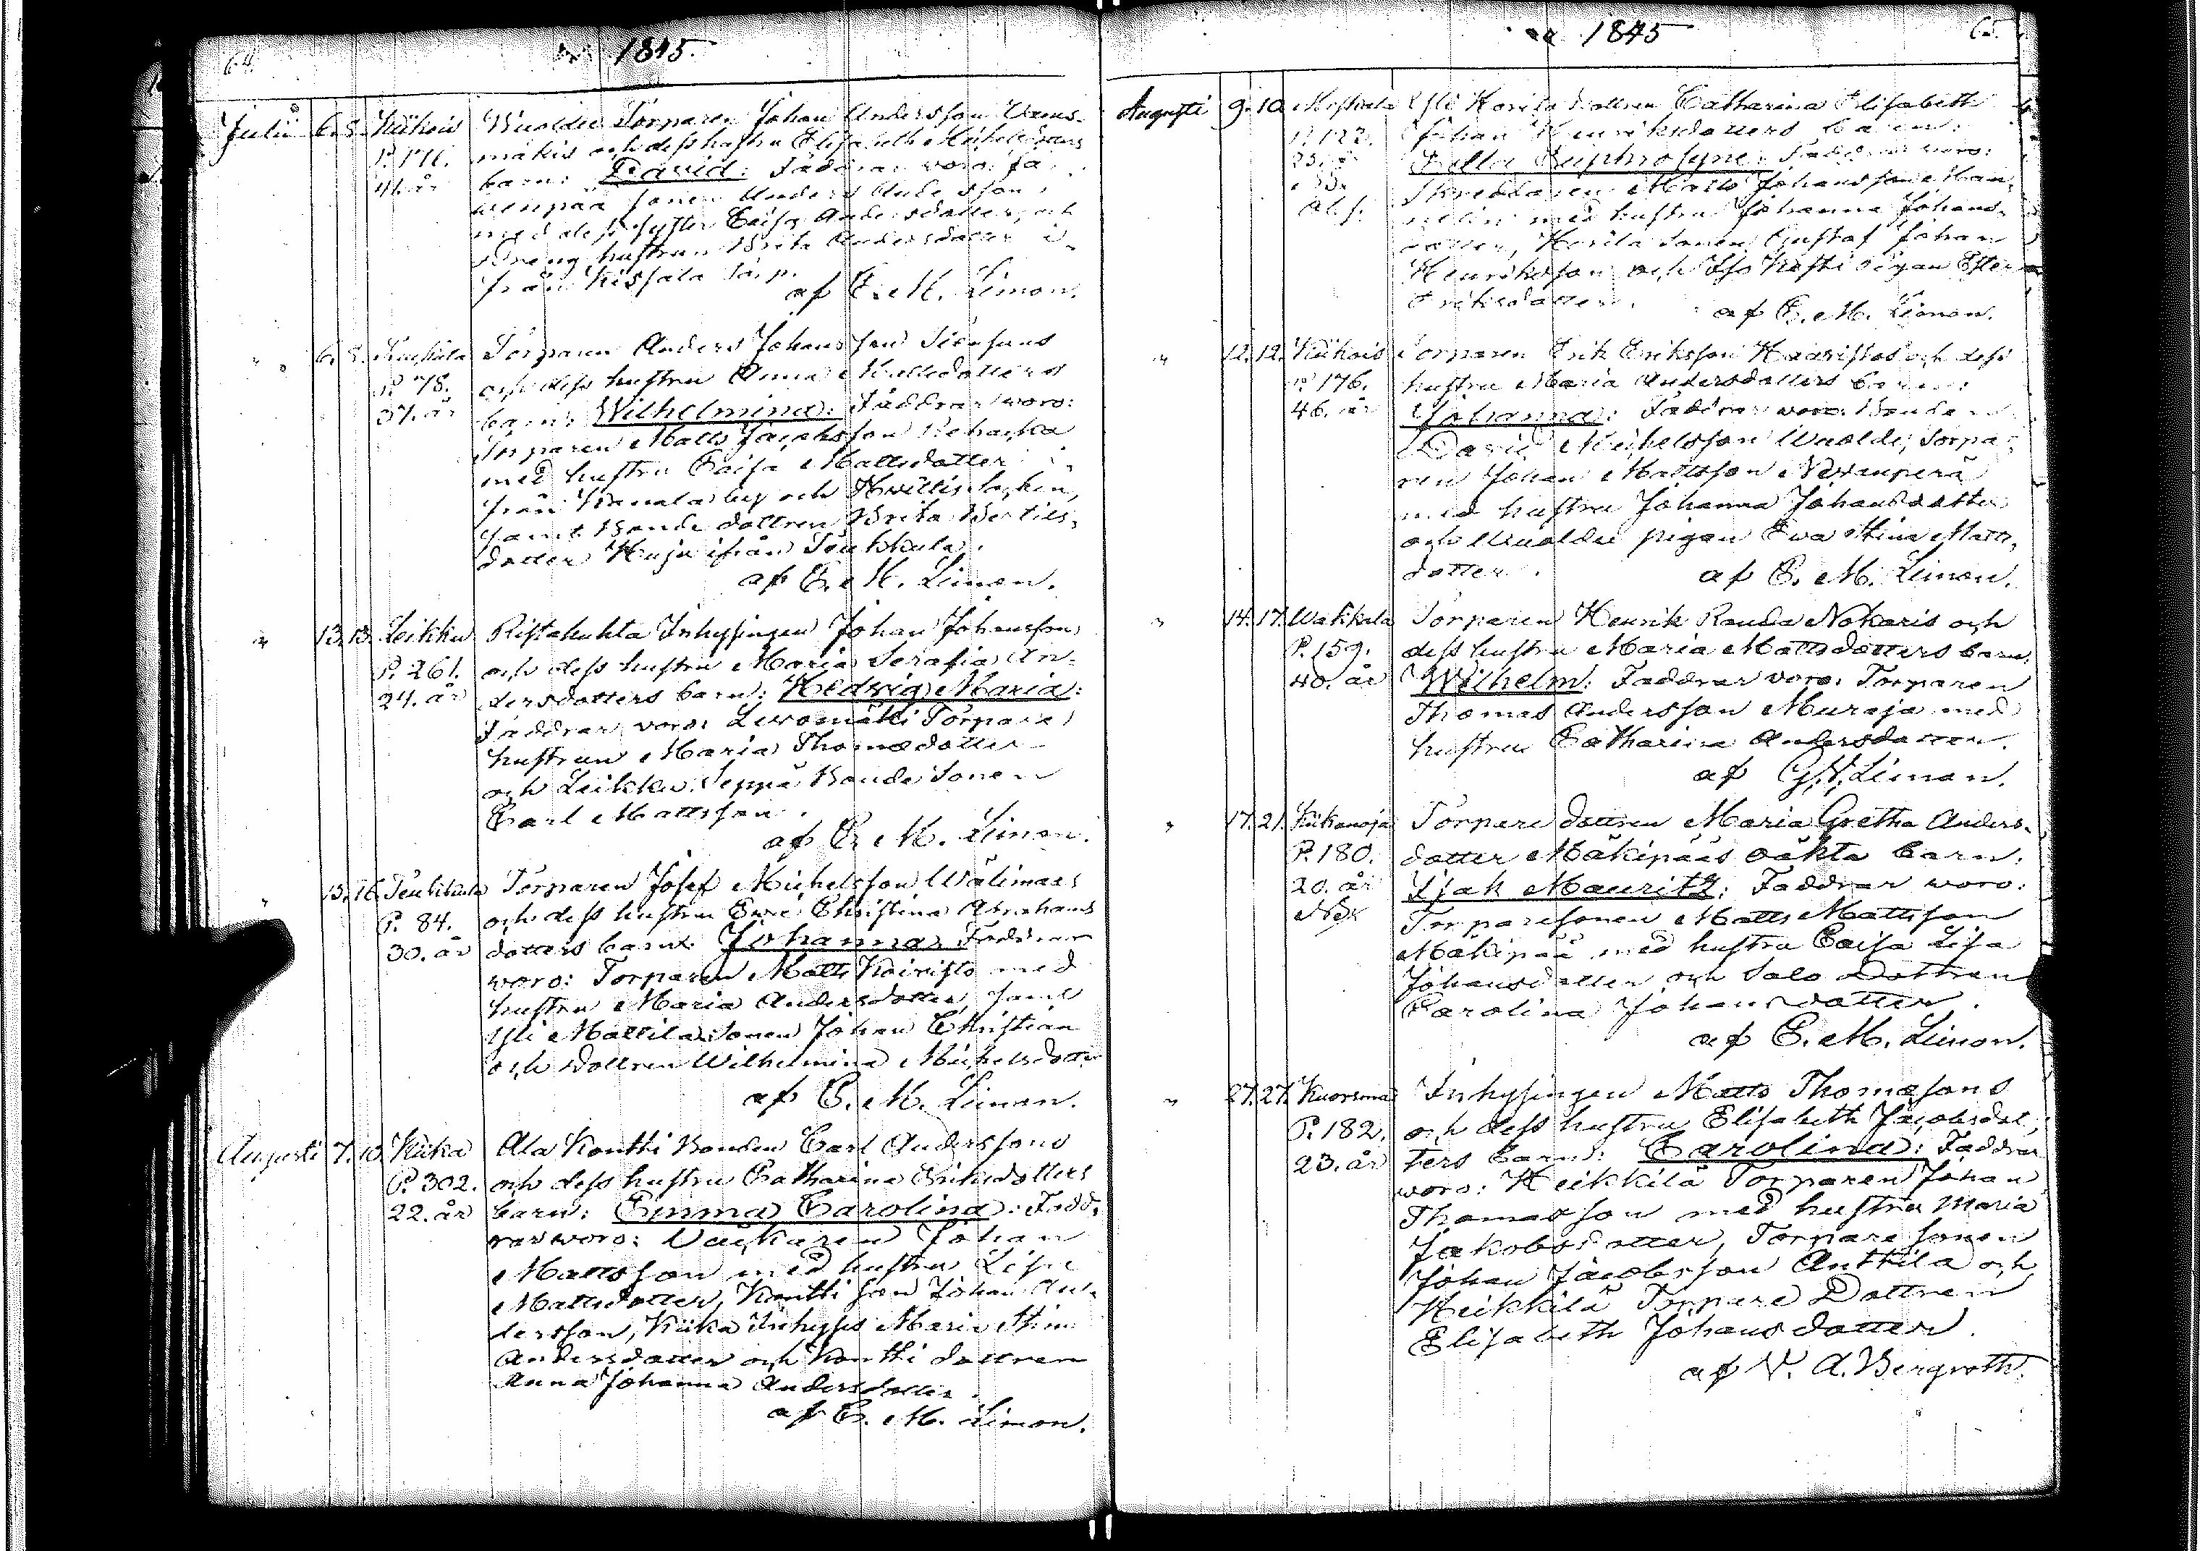 64.
1845.
Julii 6. 8. Kiikois Wuoldee Torparen Johan Andersson
P. 171. mäkis och dess hustru Elisabeth Michelsdotters
41. år barn: David: Faddrar voro: Ja-
wenpää sonen Anders Andersson
med dess syster Caisa Andersdotter, och
dräng hustrun Brita Andersdotter i-
från Kisjala
af E. M. Limon.
" 6. 8. Torparen Anders Johansson
P. 78. och dess hustru Anna Mattsdotters
37. år barn: Wilhelmina: Faddrar woro:
Torparen Matts Jacobsson
med hustru Caisa Mattsdotter i-
från by och Hvittis Socken,
samt Bonde dottren Brita Bertils-
dotter Kuja ifrån Teukkula.
af E. M. Limon.
" 13. 13. Leikku Ristahuhta Inhysingen Johan Johansson
P. 261. och dess hustru Maria Serafia An-
24. år dersdotters barn: Hedvig Maria:
Faddrar voro: Levomäki Torpare
hustrun Maria Thomædotter
och Leikku Seppä Bonde Sonen
Carl Mattsson.
af E. M. Limon.
" 15. 16. Teukkula Torparen Josef Michelsson Wälimaas
P. 84. och dess hustru Christina Abrahams
30. år dotters barn: Johanna: Faddrar
woro: Torparen Matts Koivisto med
hustru Maria Andersdotter, samt
Yli Mattila Sonen Johan Christian
och dottren Wilhelmina Michelsdotter
af E. M. Limon.
Augusti 7. 10. Kiika Ala Kontti Bonden Carl Anderssons
P. 302. och dess hustru Catharina Eriksdotters
22. år barn: Emma Carolina: Fadd-
rar woro: Johan
Mattsson med hustru Lisa
Mattsdotter, Kontti son Johan An-
dersson, Kiika Inhyses Maria Stina
Andersdotter och Kontti dottren
Anna Johanna Andersdotter.
af E. M. Limon.
1845
65.
Augusti 9. 10. Yli Korila dottren Catharina Elisabeth
P. 122. Johan Henriksdotters barn:
25. år Euphrosyne: Faddrar voro:
Skreddaren Matts Johansson Man-
nelin med hustru Johanna Johans-
dotter, Korila Sonen Gustaf Johan
Henriksson och pigan Ester
Eriksdotter.
af E. M. Limon.
" 12. 12. Kiikois Torparen Erik Eriksson Haavistos och dess
P. 176. hustru Maria Andersdotters barn:
46. år Johanna: Faddrar woro: Bonden
David Michelsson Wuolde, Torpa-
ren Johan Mattsson
med hustru Johanna Johansdotter
och Wuoldee pigan Eva Stina Matts-
dotter.
af E. M. Limon.
" 14. 17. Wakkala Torparen Henrik Rauda Nokaris och
P. 159. dess hustru Maria Mattsdotters barn:
40. år Wilhelm: Faddrar voro: Torparen
Thomas Andersson Muraja med
hustru Catharina Andersdotter.
af G. N. Limon.
" 17. 21. Kiikanoja Torpare dottren Maria Gretha Anders-
P. 180. dotter Mäkipääs oäkta barn:
20. år Isak Mauritz: Faddrar woro:
Torparesonen Matts Mattsson
Mäkipää med hustru Caisa Lisa
Johansdotter och Salo Dottren
Carolina Johansdotter.
af E. M. Limon.
" 27. 27. Kuorsmaa Inhysingen Matts Thomæsons
P. 182. och dess hustru Elisabeth Jacobsdot-
23. år ters barn: Carolina: Faddrar
woro: Heikkilä Torparen Johan
Thomasson med hustru Maria
Jakobsdotter, Torpare Sonen
Johan Jacobsson Anttila och
Heikkilä Torpare Dottren
Elisabeth Johansdotter.
af V. A. Bergroth.